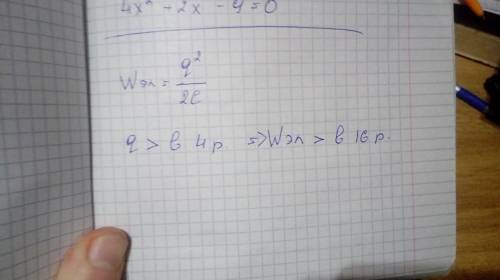 4x² - 2x - 9 = 0
Wэл = q² / 2C
q > в 4 р. => Wэл > в 16 р.